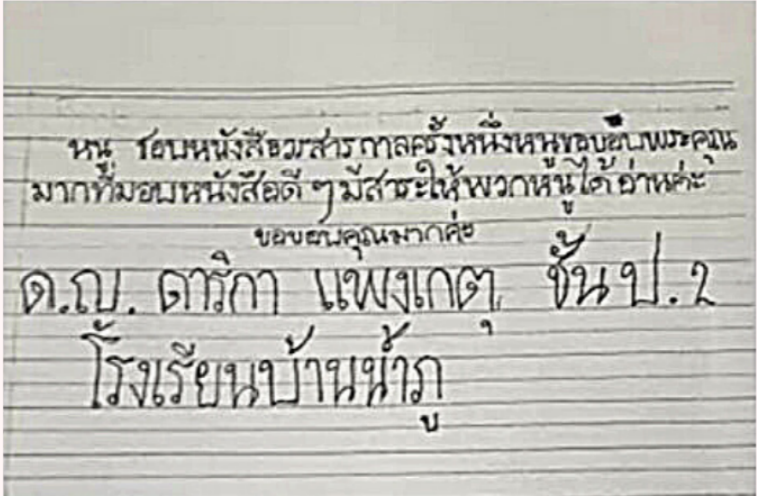 หนู ชอบหนังสือวารสารกาลครั้งหนึ่งหนูขอบอบพระคุณ
มากที่มอบหนังสือดี ๆ มีสาระให้พวกหนูได้อ่านค่ะ
ขอขอบคุณมากค่ะ
ด.ญ. ดาริกา แพงเกตุ ชั้น ป. ๒
โรงเรียนบ้านน้ำภู